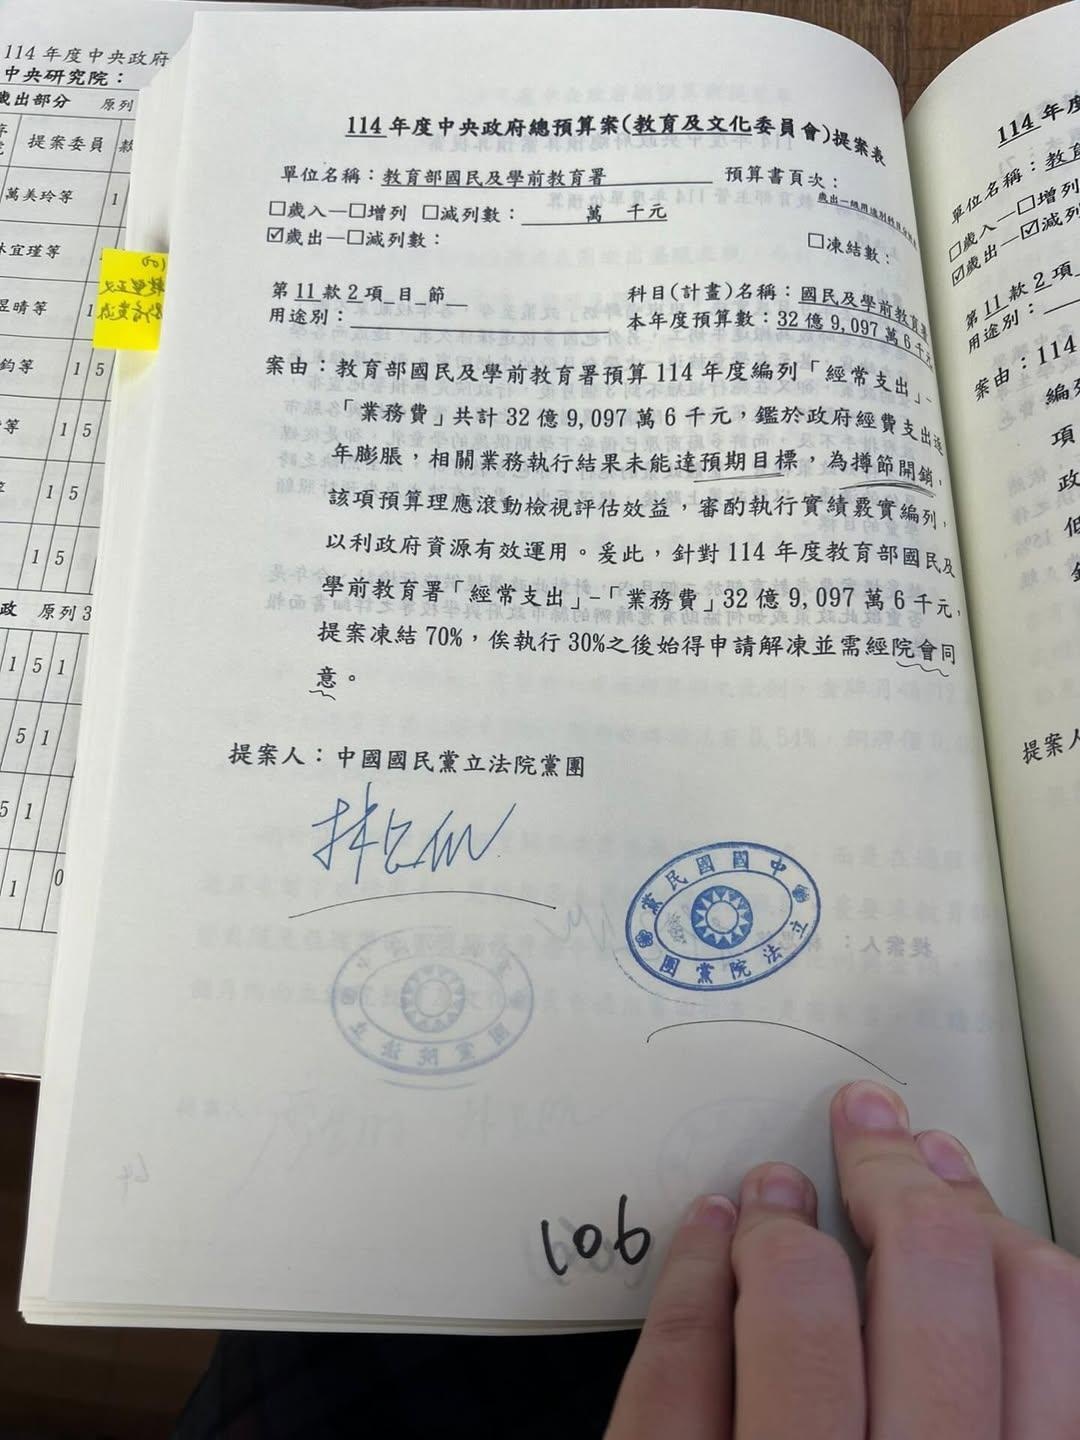 114年度中央政府總預算案(教育及文化委員會)提案表
單位名稱：教育部國民及學前教育署 預算書頁次：
□歲入—□增列 □減列數： 萬 千元
☑歲出—□減列數： □凍結數：
第11款2項_目_節_ 科目(計畫)名稱：國民及學前教育署
用途別： 本年度預算數：32億9,097萬6千元
案由：教育部國民及學前教育署預算114年度編列「經常支出」-
「業務費」共計32億9,097萬6千元，鑑於政府經費支出逐
年膨脹，相關業務執行結果未能達預期目標，為撙節開銷，
該項預算理應滾動檢視評估效益，審酌執行實績覈實編列，
以利政府資源有效運用。爰此，針對114年度教育部國民及
學前教育署「經常支出」-「業務費」32億9,097萬6千元，
提案凍結70%，俟執行30%之後始得申請解凍並需經院會同
意。
提案人：中國國民黨立法院黨團
中國國民黨
立法院黨團
106
114年度中央政府
中央研究院：
歲出部分 原列
提案委員 款
萬美玲等 1
林宜瑾等 1
昱晴等 1
鈞等 1 5
等 1 5
1 5
1 5
政 原列3
1 5 1
5 1
5 1
1 0
114年度
單位名稱：教育
□歲入—□增列
☑歲出—☑減列
第11款2項
用途別：
案由：114
編列
項
政
提案人